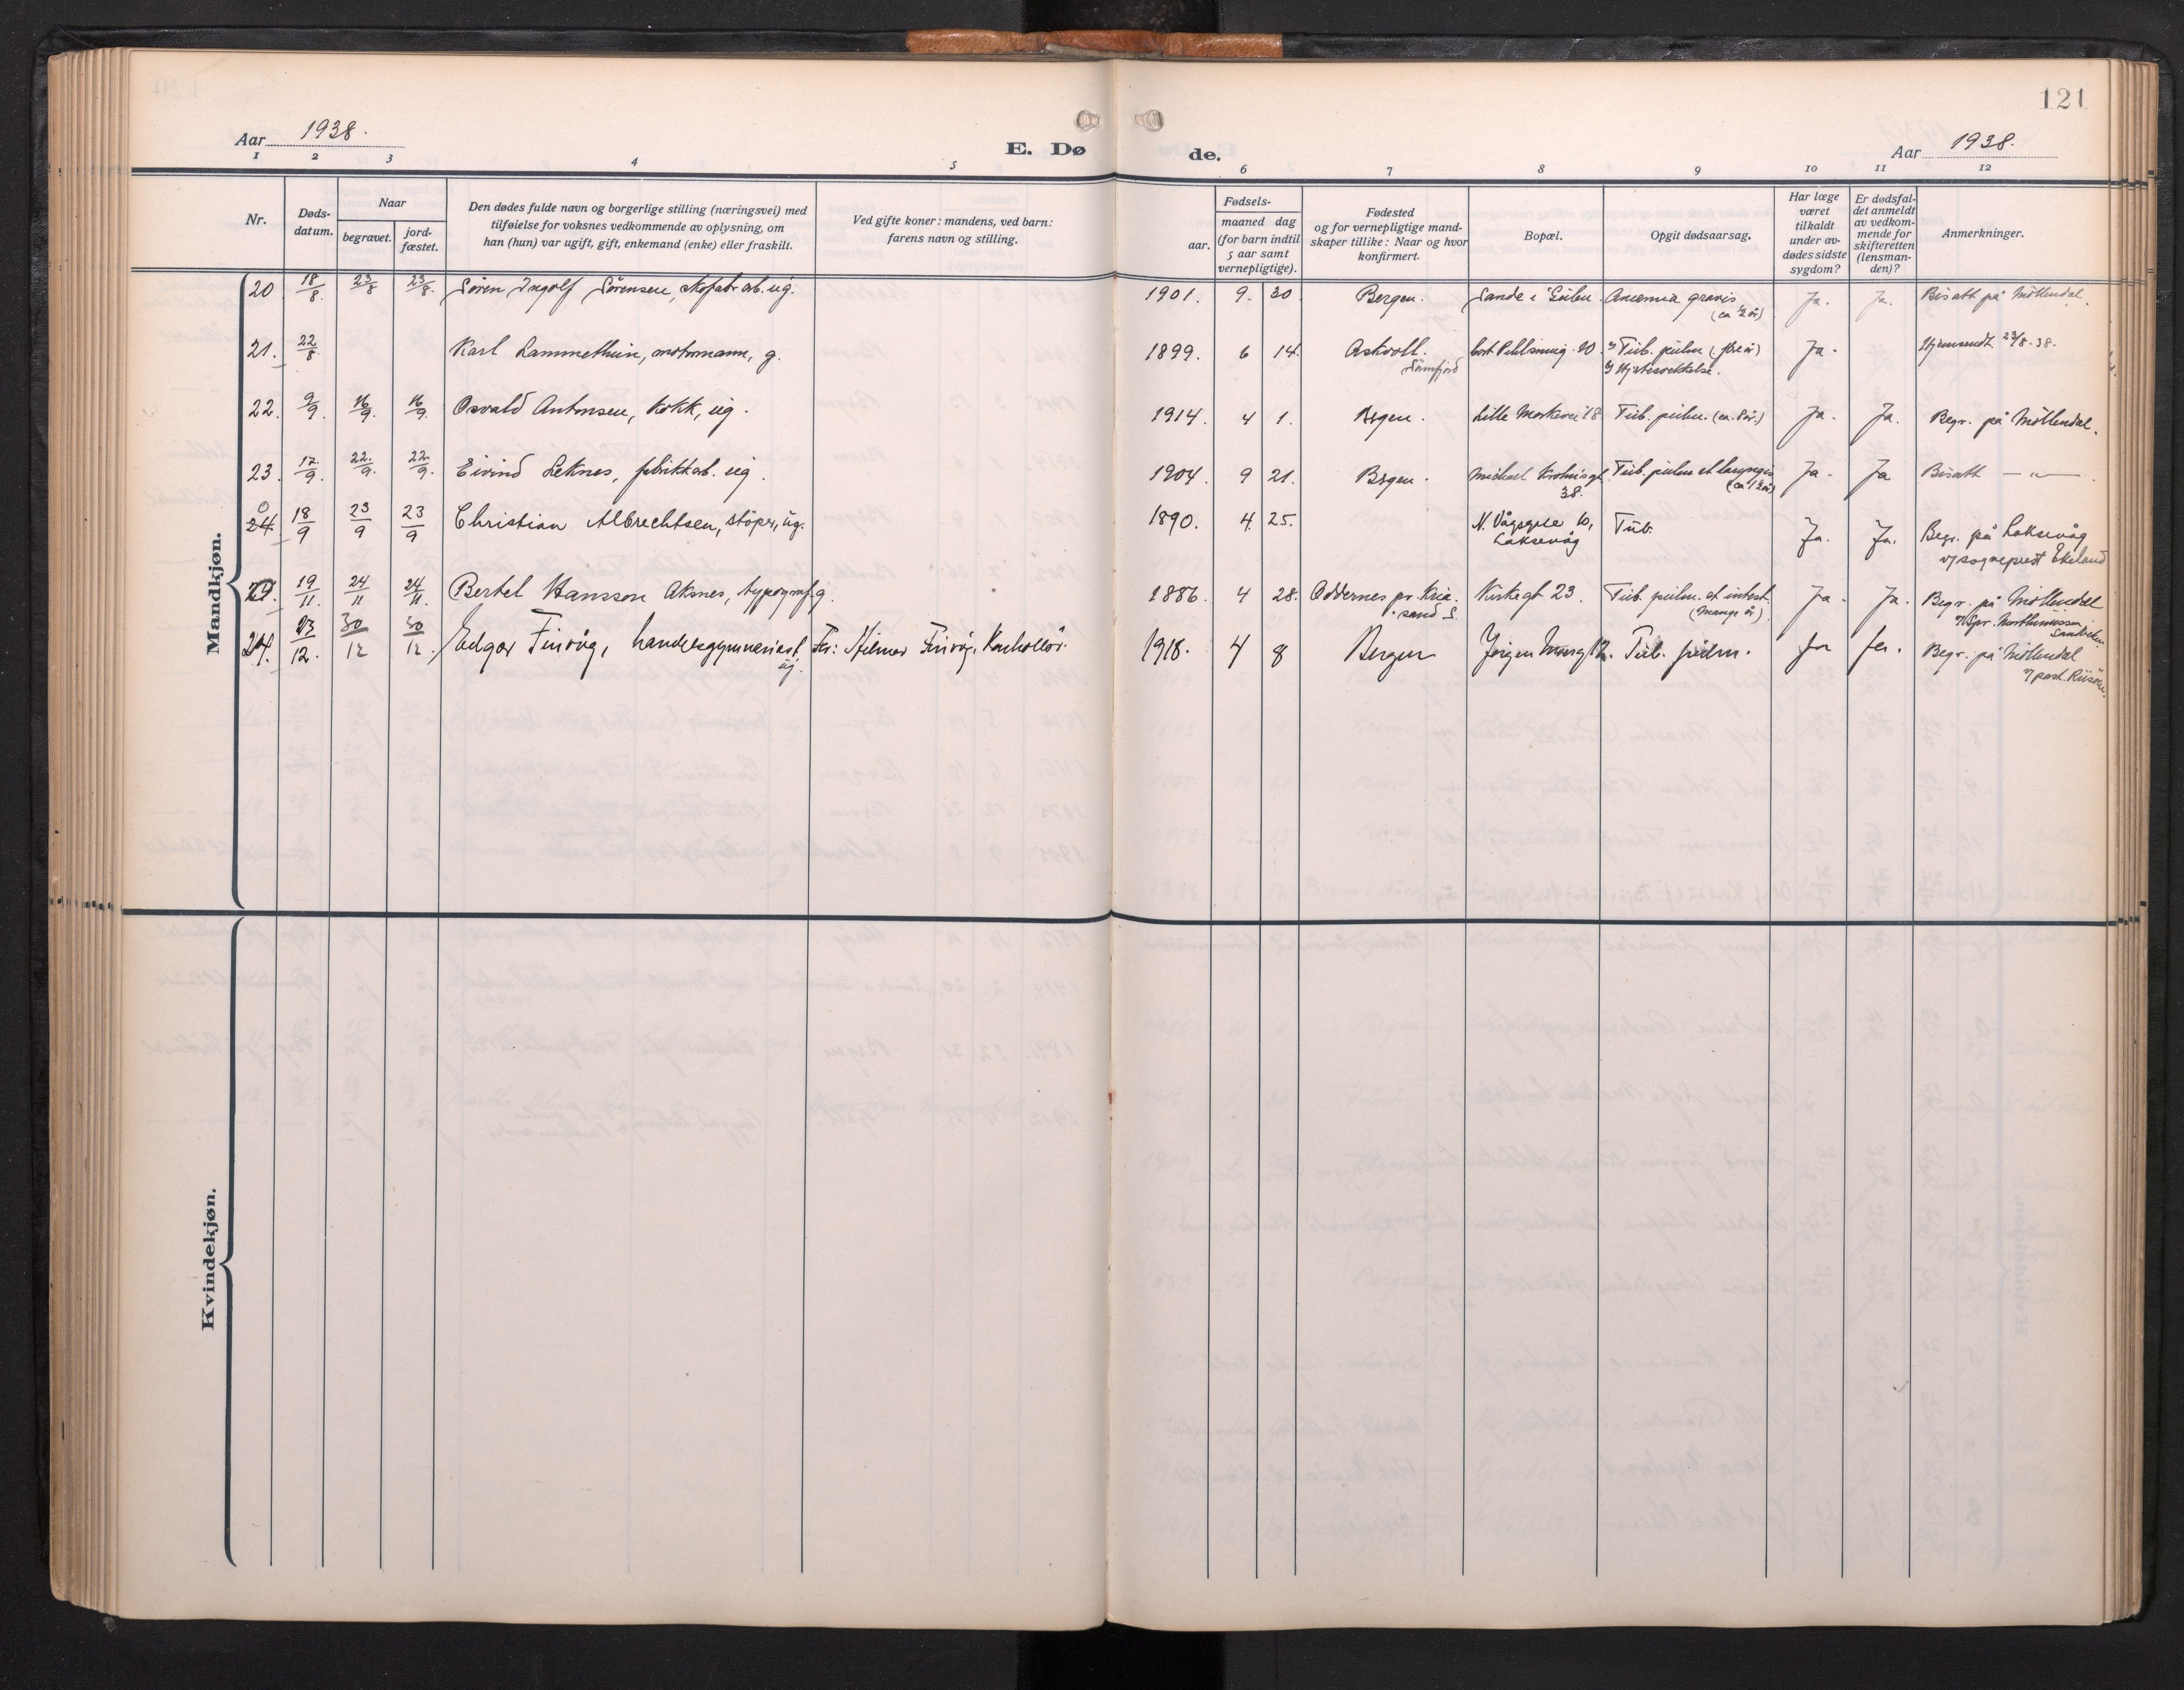 121
Aar 1938.
E. Dø
de.
Aar 1938.
1 2 3 4 5 6 7 8 9 10 11 12
Nr.
Døds-
datum.
Naar
begravet.
jord-
fæstet.
Den dødes fulde navn og borgerlige stilling (næringsvei) med
tilføielse for voksnes vedkommende av oplysning, om
han (hun) var ugift, gift, enkemand (enke) eller fraskilt.
Ved gifte koner: mandens, ved barn:
farens navn og stilling.
Fødsels-
aar.
maaned dag
(for barn indtil
5 aar samt
vernepligtige).
Fødested
og for vernepligtige mand-
skaper tillike: Naar og hvor
konfirmert.
Bopæl.
Opgit dødsaarsag.
Har læge
været
tilkaldt
under av-
dødes sidste
sygdom?
Er dødsfal-
det anmeldt
av vedkom-
mende for
skifteretten
(lensman-
den)?
Anmerkninger.
Mandkjøn.
20 18/8. 23/8 23/8. Søren Ingolf Sørensen, skofabr. arb. ug. 1901. 9. 30. Bergen. Sande i Gulen. Anæmia gravis (ca ½ år) Ja. Ja. Bisatt på Möllendal.
21. 22/8. Karl Lammethun, motormann, g. 1899. 6 14. Askvoll. Sunnfjord 20. 1) Tub. pulm 2) Hjertesvekkelse. Ja. Hjemsendt 23/8-38.
22. 9/9. 16/9. 16/9. Osvald Antonsen, kokk, ug. 1914. 4 1. Bergen. Lille Markevei 18 Tub. pulm. (ca. 8 år.) Ja. Ja. Begr. på Möllendal.
23. 17/9. 22./9. 22./9. Eivind Leknes, fabrikkarb. ug. 1904. 9 21. Bergen. Michael Krohns gt. 38. Tub. pulm et laryngis Ja. Ja Bisatt — " —
0
24 18/9 23/9 23/9 Christian Albrechtsen, støper, ug. 1890. 4. 25. N. Vågsgate 10, Laksevåg Tub. Ja. Ja. Begr. på Laksevåg v/ sogneprest Ekeland
19/11. 24/11 24/11. Bertel Hansson Aksnes, typograf, g. 1886. 4 28. Oddernes pr. Kria.sand S. Kirkegt 23. Tub. pulm. et intest. (Mange år) Ja. Ja. Begr. på Möllendal
24. 23/12. 30/12 30/12. Edgar Finvåg, handelsgymnasiast ug. Far: Hilmar Finvåg, Kontollør. 1918. 4 8 Bergen Jørgen Muns gt 12. Tub. pulm. Ja Ja. Begr. på Möllendal
Kvindekjøn.